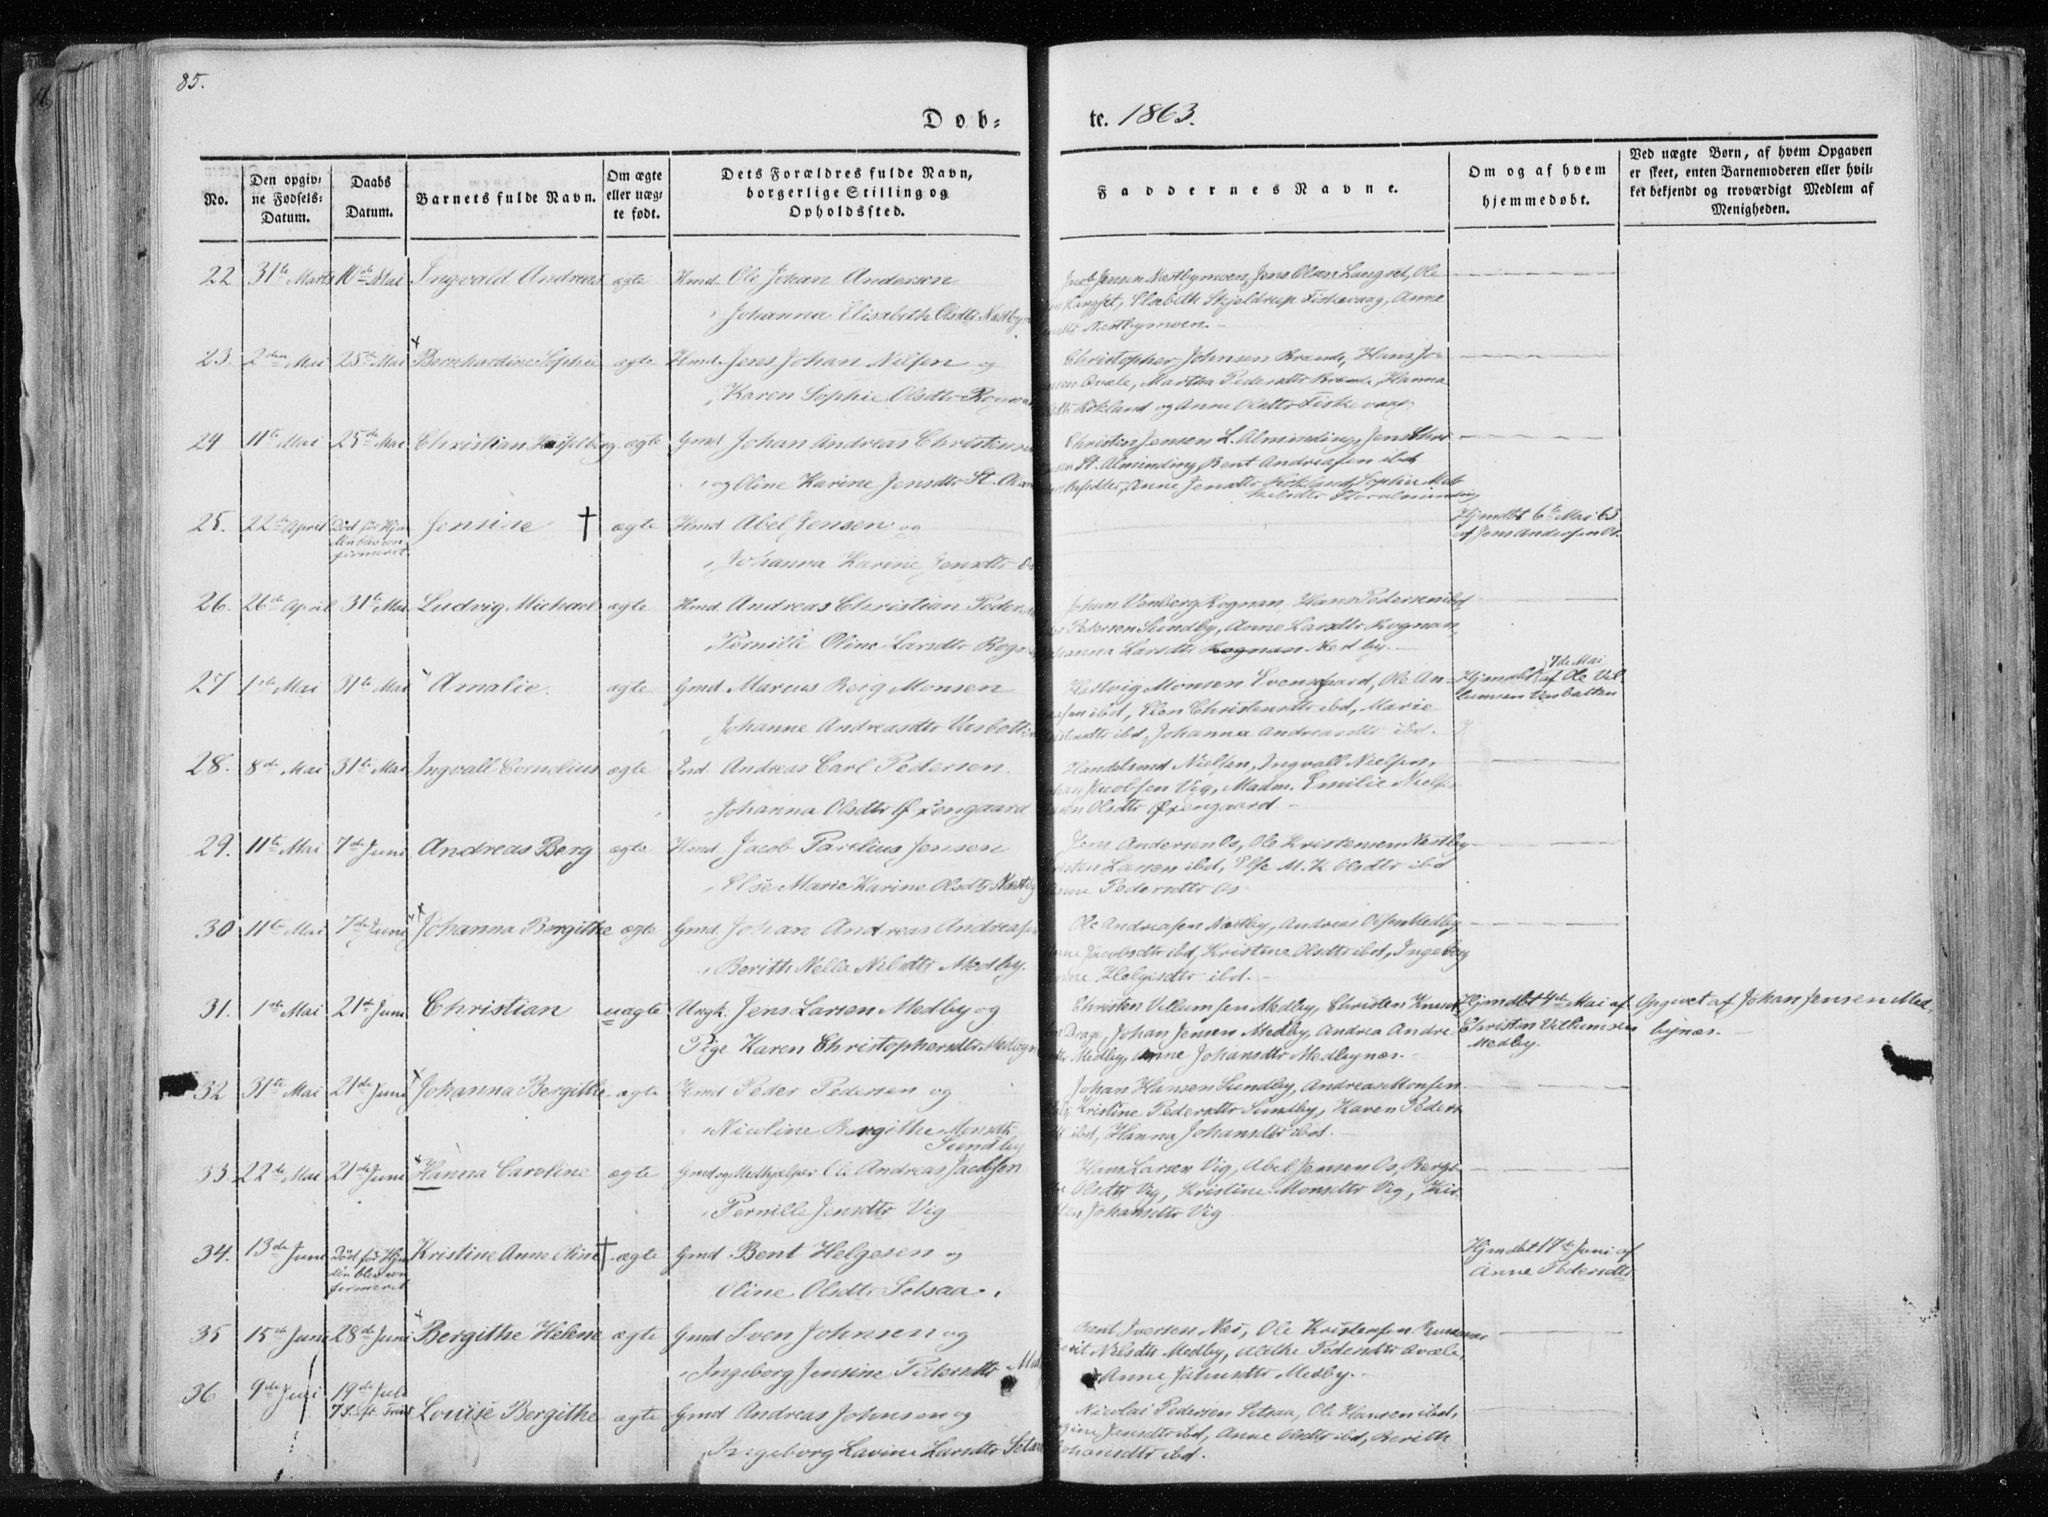 85.
Døb-
te. 1863.
No.
Den opgiv-
ne Fødsels-
Datum.
Daabs
Datum.
Barnets fulde Navn.
Om ægte
eller uæg-
te født.
Dets Forældres fulde Navn,
borgerlige Stilling og
Opholdssted.
Faddernes Navne.
Om og af hvem
hjemmedøbt.
Ved uægte Børn, af hvem Opgaven
er skeet, enten Barnemoderen eller hvil-
ket bekjendt og troværdigt Medlem af
Menigheden.
22 31te Marts 10de Mai Ingvald Andreas ægte Hmd. Ole Johan Andersen
Johanna Elisabeth Olsdtr Næstby
Jacob Jensen Næstbymoen, Jens Olsen Langset, Ole
Langset, Elsebeth Skjeldrup Fiskevaag, Anne
Næstbymoen.
23. 2den Mai 25de Mai Bernhardine Sophie ægte Hmd. Jens Johan Nilsen og
Karen Sophie Olsdtr
Christopher Johnsen Brænde, Hans Jo-
Ovale, Martha Pedersdtr Brænde, Hanna
og Anne Olsdtr Fiskevaag
24 11te Mai 25de Mai Christian ægte Gmd Johan Andreas Christensen
og Oline Karine Jensdtr St.
Christen Jensen L. Alminding, Jens Chri-
St. Alminding, Bent Andreasen ibd,
Anne Jensdtr Sophie
Storalminding
25. 22de April Død før Hjm
døben blev con-
firmeret. Jensine † ægte Hmd Abel Jensen og
Johanna Karine Jensdtr
Hjmdbt 6te Mai 63
af Jens Andersen Os.
26. 26de April 31te Mai Ludvig Michael ægte Hmd. Andreas Christian Peder
Pernille Oline Larsdtr Rogn
Johan Venberg Rognan, Hans Pedersen ibd,
Petersen Sundby, Anne Larsdtr Rognan,
Johanna Larsdtr Rognan Næstby.
27 1ste Mai 31te Mai Amalie. ægte Gmd. Marius Beig Monsen
Johanne Andreasdtr
Hartvig Monsen Evensgaard, Ole An-
ibd, Elen Christensdtr ibd, Marie
ibd, Johanna Andreasdtr ibd.
Hjemdbt 7de Mai
af Ole Vil-
lumsen
28. 8de Mai 31te Mai Ingvall Cornelius ægte Ind. Andreas Carl Pedersen.
Johanna Olsdtr Øxengaard
Handelsmd Nielsen, Ingvall Nielsen,
Jacobsen Vig, Madm. Emilie Nielsen
Olsdtr Øxengaard.
29. 11te Mai 7de Juni Andreas Berg ægte Hmd. Jacob Parelius Jensen
Else Marie Karine Olsdtr Næstby
Jens Andersen Os, Ole Kristensen Næstby
Larsen ibd, Else M. K. Olsdtr ibd
Pedersdtr Os
30 11te Mai 7de Juni Johanna Bergithe ægte Gmd Johan Andreas Andreasen
Berith Nella Nilsdtr Medby.
Ole Andreasen Næstby, Andreas Olsen Medby
Jacobsdtr ibd, Kristine Olsdtr ibd, Ingeborg
Helgesdtr ibd.
31. 1ste Mai 21de Juni Christian uægte Ungk. Jens Larsen Medby og
Pige Karen Christophersdtr Medbyn
Christen Villumsen Medby, Christen Knud-
Drage, Johan Jensen Medby, Andrea Andre-
Medby, Anne Johansdtr Medbynæs.
Hjmdbt 4de Mai af
Christen Villumsen
Medby.
Opgivet af Johan Jensen Med-
bynæs.
32 31te Mai 21de Juni Johanna Bergithe ægte Hmd Peder Pedersen og
Nicoline Bergithe Monsdtr
Sundby
Johan Hansen Sundby, Andreas Monsen
Kristine Pedersdtr Sundby, Karen Peders-
ibd, Hanna Johansdtr ibd.
33. 22de Mai 21de Juni Hanna Caroline ægte Gmd og Medhjelper Ole Andreas Jacobsen
Pernille Jensdtr Vig
Hans Larsen Vig, Abel Jensen Os, Bergi-
Olsdtr Vig, Kristine Monsdtr Vig, Kir-
sten Johansdtr Vig
34. 13de Juni Død før Hjm
døben blev con-
firmeret Kristine Anne Oline † ægte Gmd Bent Helgesen og
Oline Olsdtr Setsaa.
Hjmdbt 17de Juni af
Anne Pedersdtr
35 15de Juni 28de Juni Bergithe Helene ægte Gmd Sven Johnsen og
Ingeborg Jensine Pedersdtr
Bent Iversen Næs, Ole Kristensen
Nilsdtr Medby, Alethe Pedersdtr Ovale,
Anne Johansdtr Medby.
36 9de Juni 19de Juli
7 S. fr. Trinit Louise Bergithe ægte Gmd Andreas Johnsen og
Ingeborg Lavine Larsdtr Setsaa
Nicolai Pedersen Setsaa, Ole Hansen ibd,
Jensdtr ibd, Anne Olsdtr ibd, Berith
Johansdtr ibd.